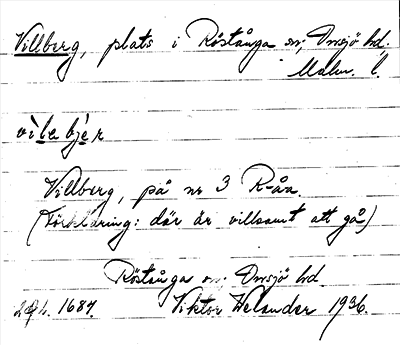 Villberg, plats i Röstånga sn; Onsjö hd,
Malm. l.
vìlebjer
Villberg, på nr 3 R-ån.
(Förklaring: där är villsamt att gå)
Röstånga sn; Onsjö hd.
1684. Viktor Welander 1936.